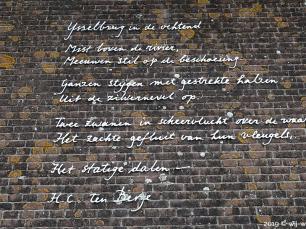 Ysselbrug in de ochtend
Mist boven de rivier,
Meeuwen stil op de beschoeiing
Ganzen stijgen met gestrekte halzen
Uit de zilvernevel op
Twee zwanen in scheervlucht over de waa
Het zachte gefluit van hun vleugels,
Het statige dalen —
H.C. ten Berge
2019 © wij w